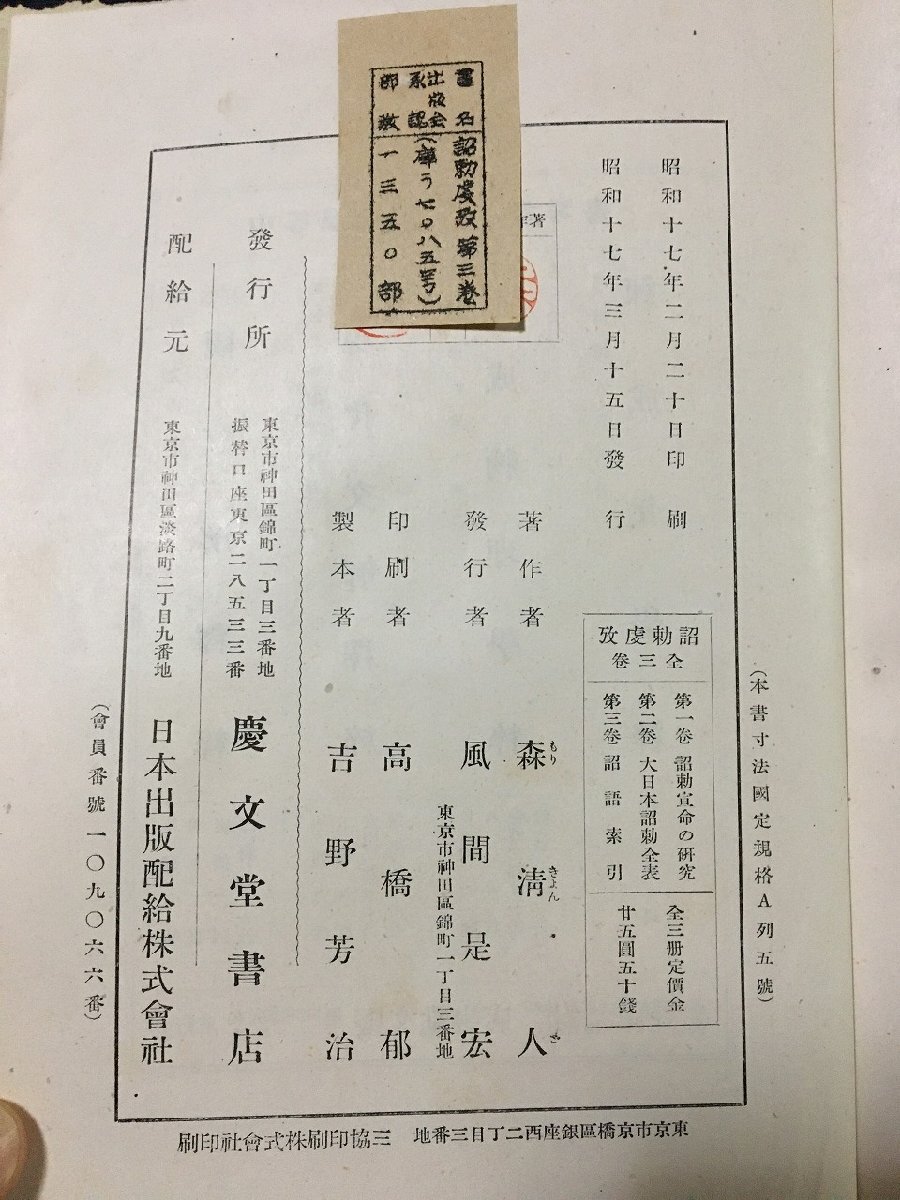 書名 詔勅虔攷第三卷
出版会承認 (庫う七〇八五号)
部数 一三五〇部
著
昭和十七年二月二十日印刷
昭和十七年三月十五日發行
(本書寸法國定規格A列五號)
詔勅虔攷
全三卷
第一卷 詔勅宣命の研究
第二卷 大日本詔勅全表
第三卷 詔語索引
全三册定價金
廿五圓五十錢
著作者 森清人
もり きよん ど
發行者 風間是宏
東京市神田區錦町一丁目三番地
印刷者 高橋郁
製本者 吉野芳治
發行所
東京市神田區錦町一丁目三番地
振替口座東京二八五三三番
慶文堂書店
配給元 東京市神田區淡路町二丁目九番地 日本出版配給株式會社
(會員番號一〇九〇六六番)
東京市京橋區銀座西二丁目三番地 三協印刷株式會社印刷